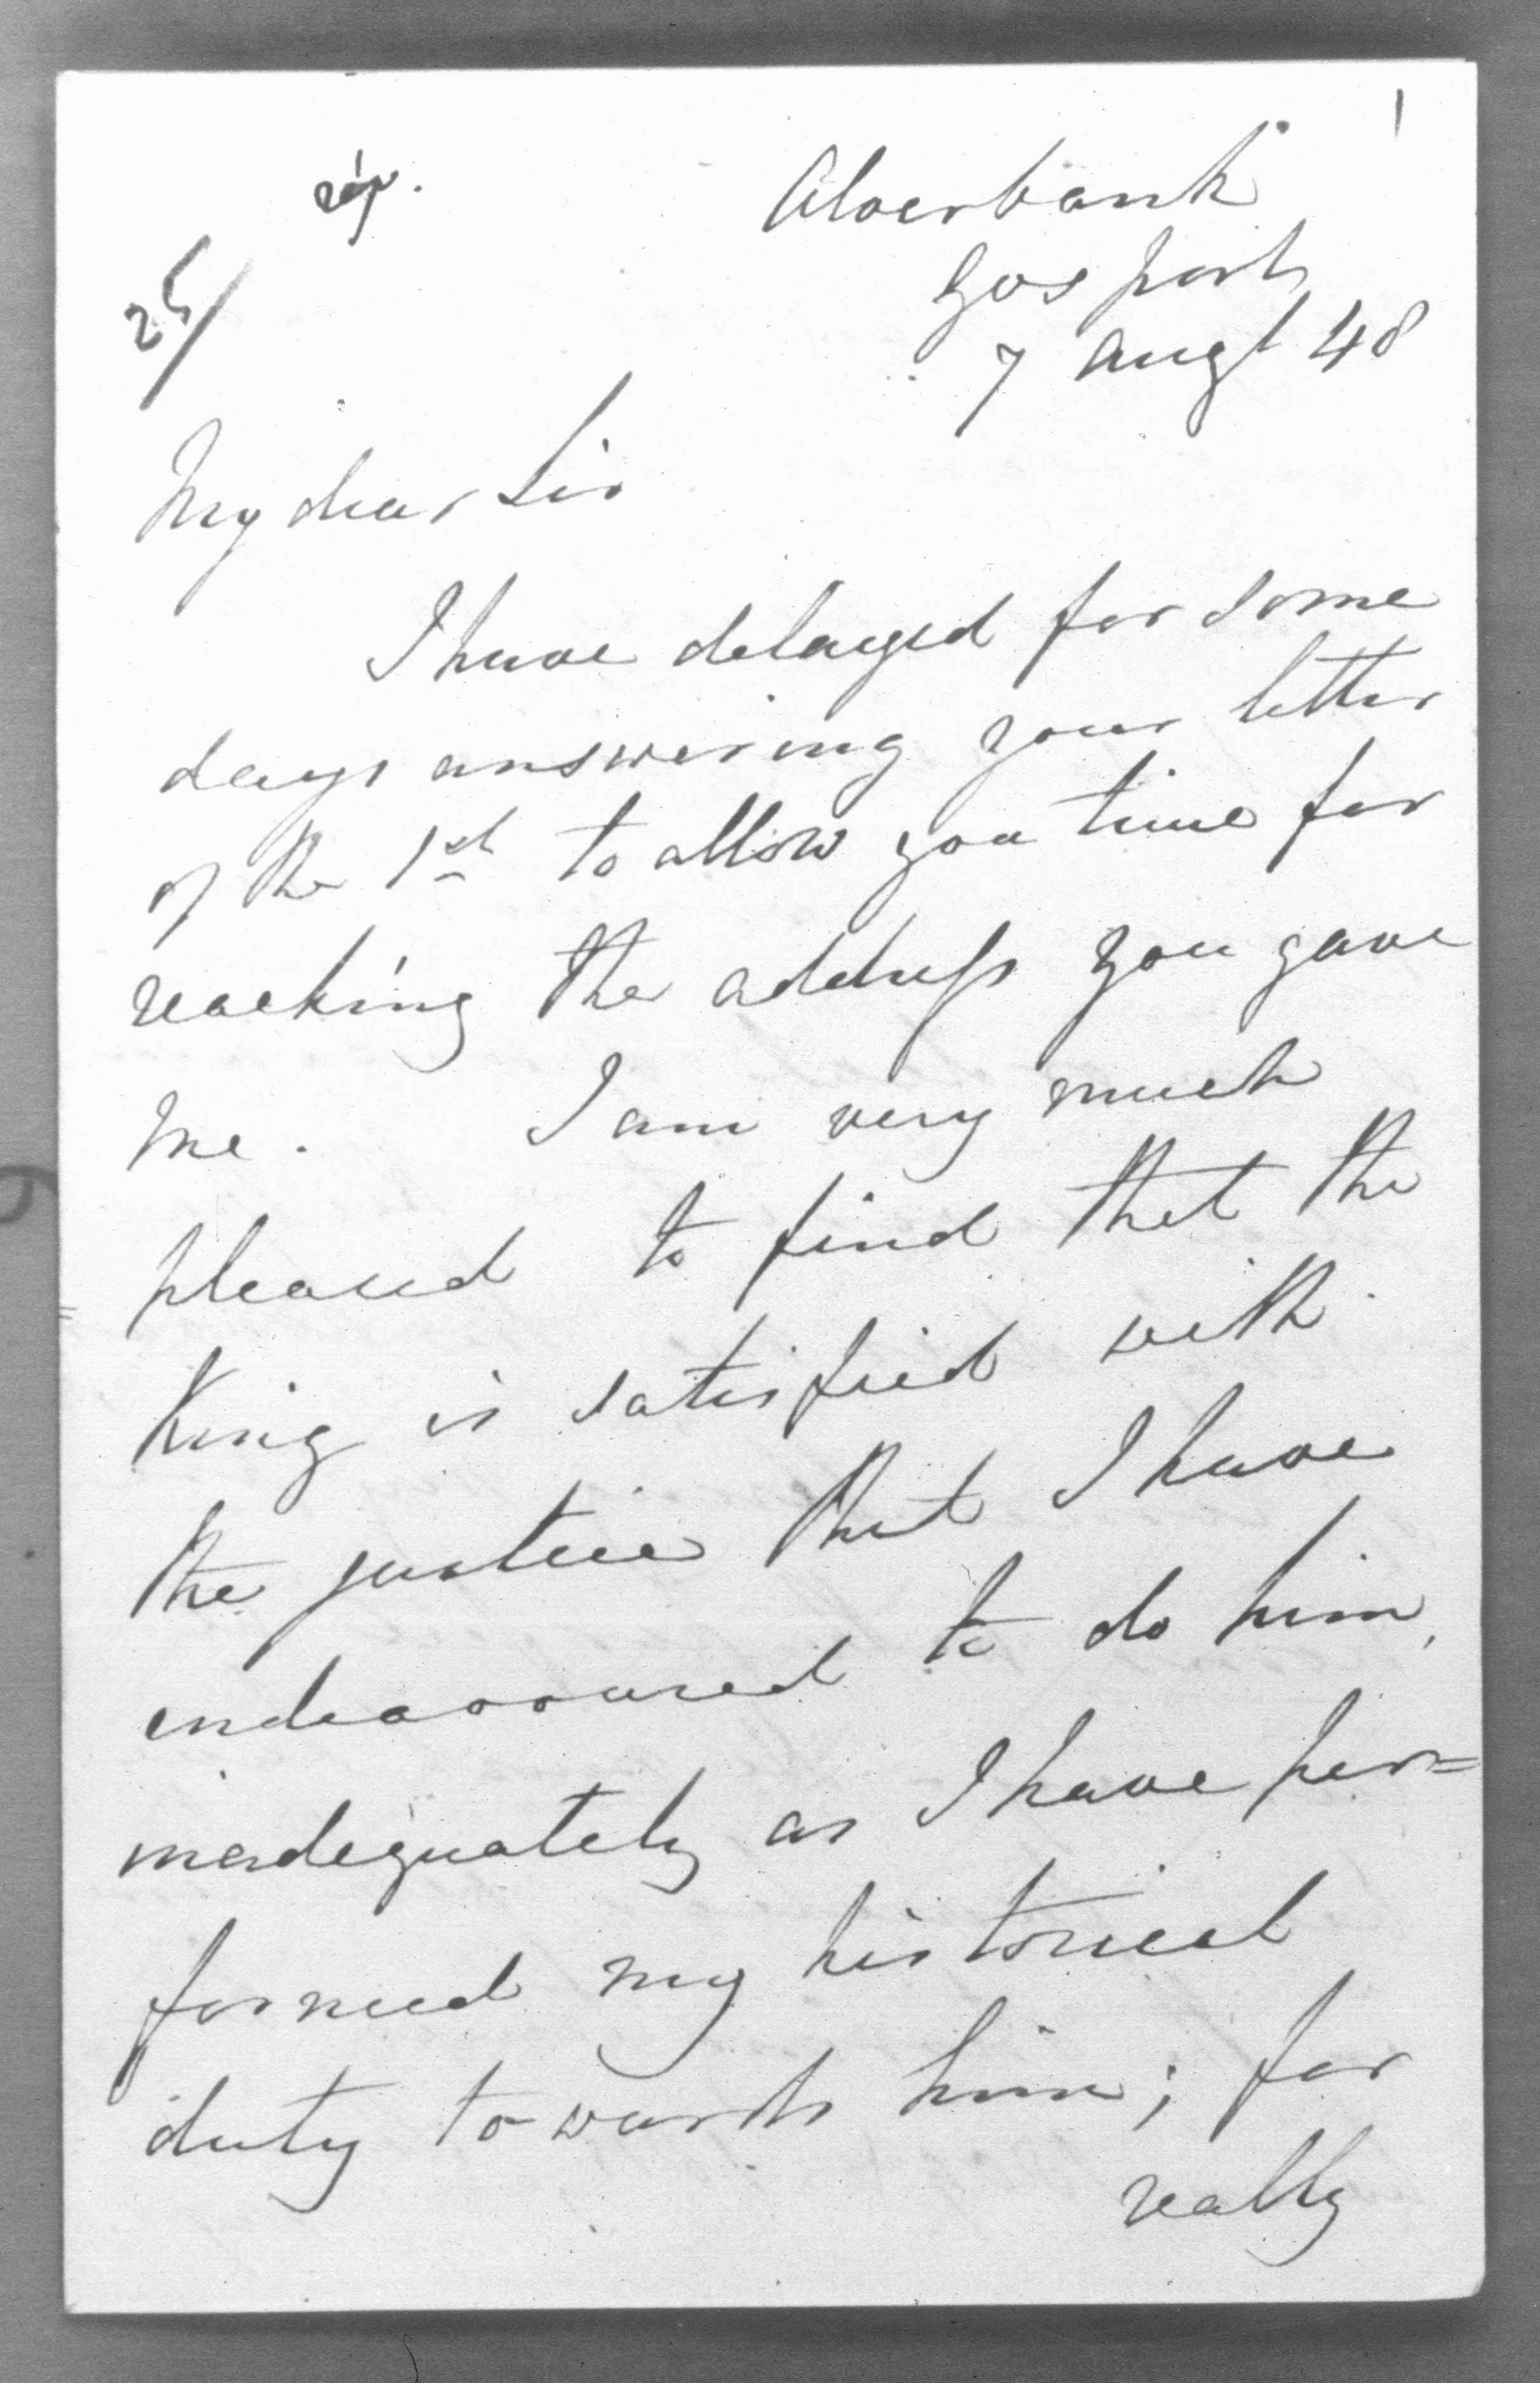 1
rép.
Alverbank
25/
Gosport
7 Augt 48
My dear Sir
I have delayed for some
days answering your letter
of the 1st to allow you time for
reaching the address you gave
me. I am very much
pleased to find that the
King is satisfied with
the justice that I have
endeavoured to do him,
inadequately as I have per=
formed my historical
duty towards him; for
really